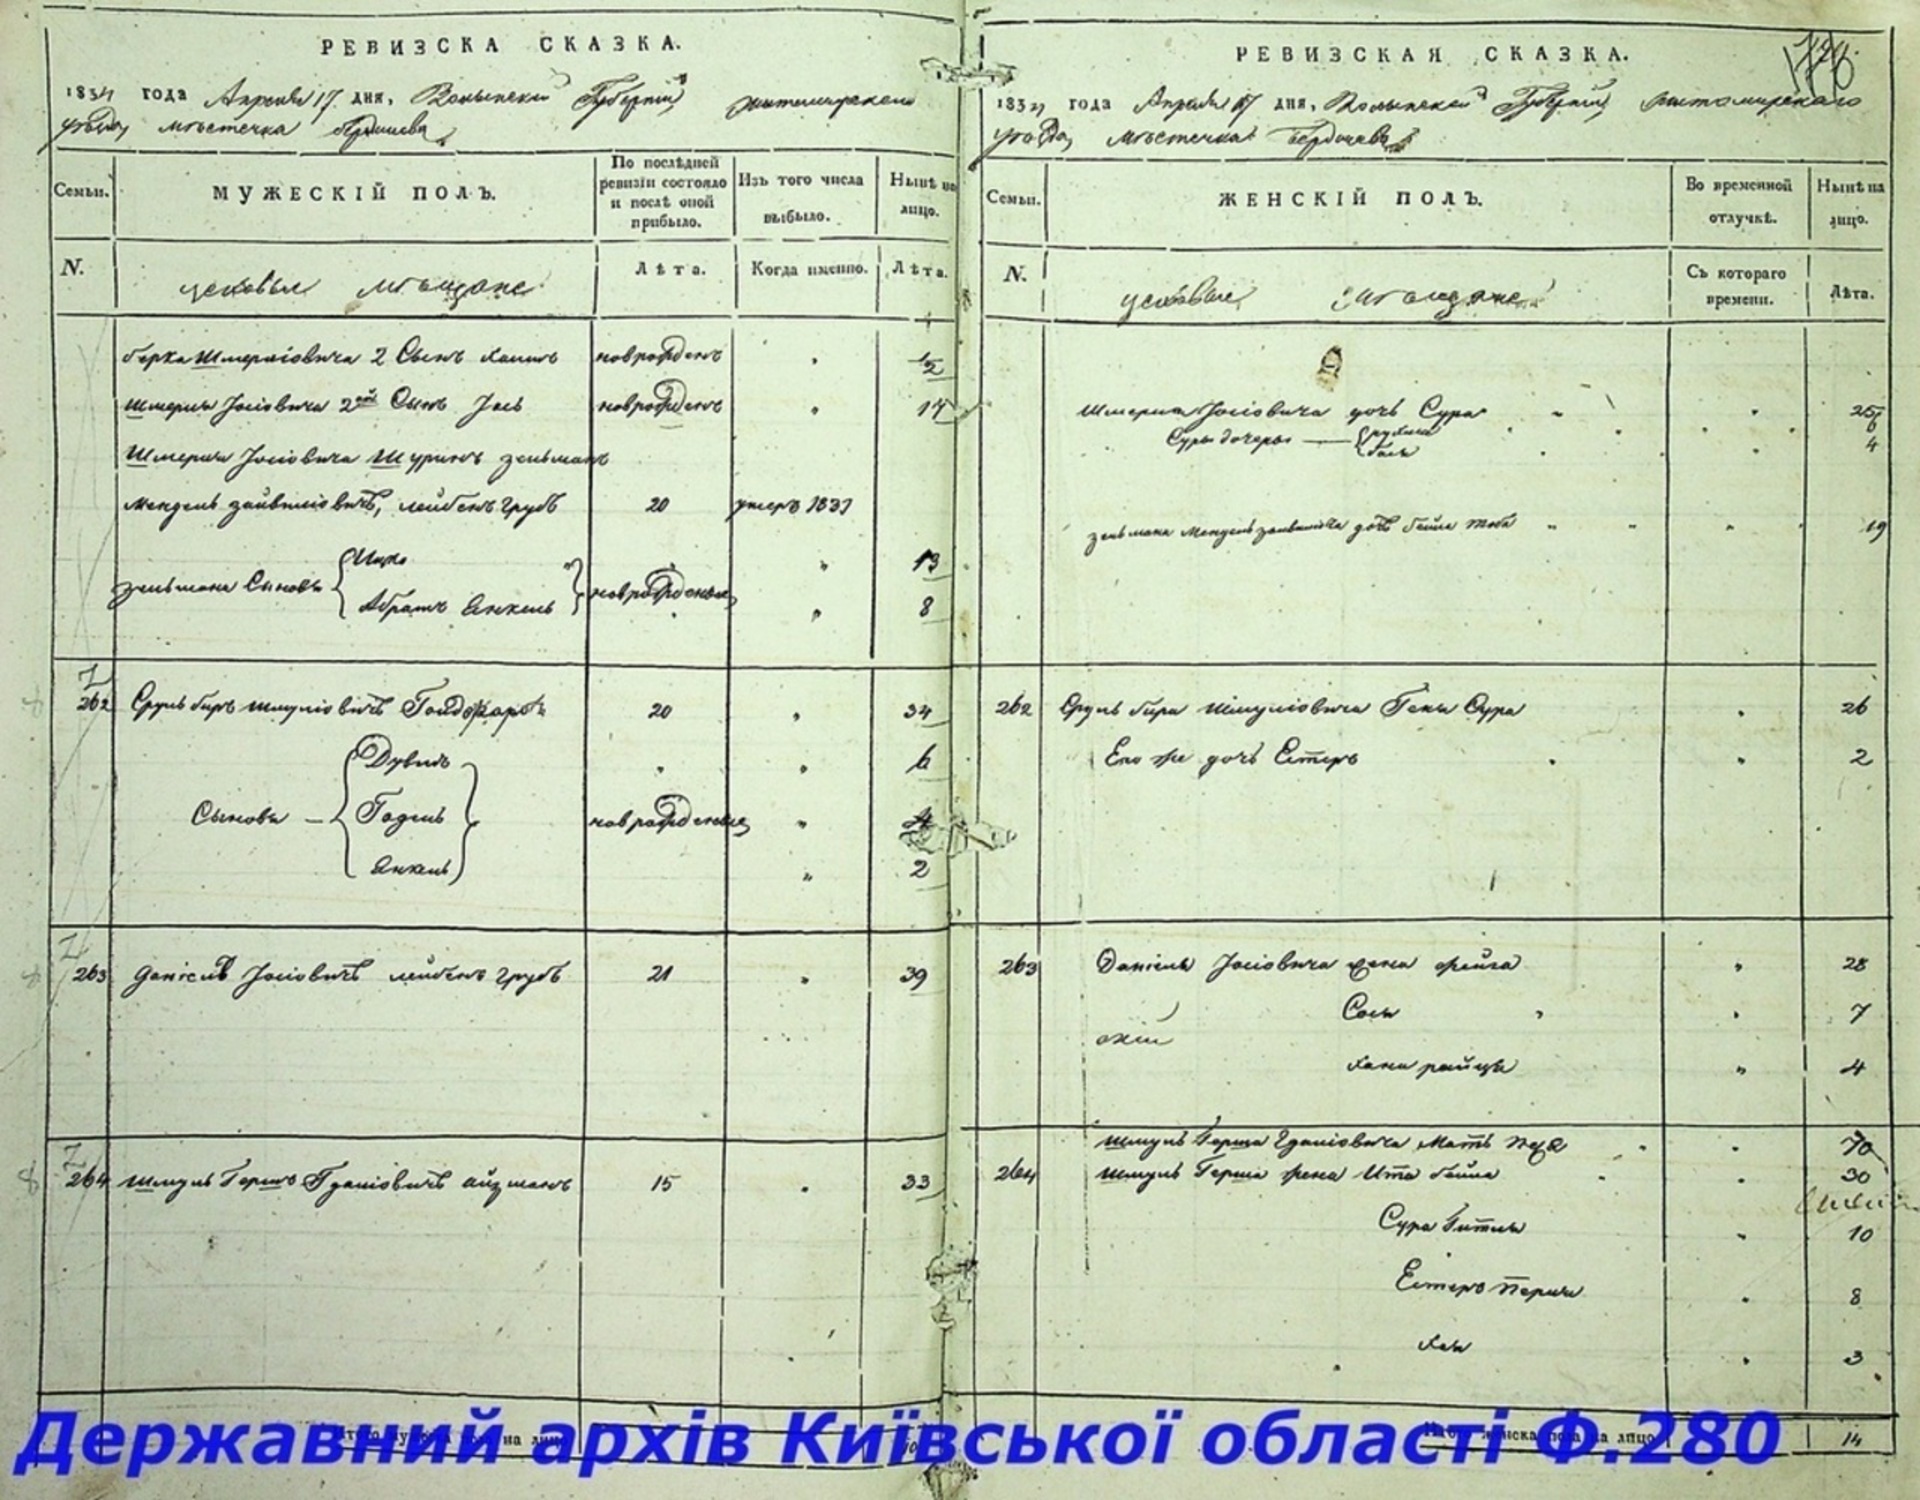 РЕВИЗСКА СКАЗКА.
1834 года Апреля 17 дня, Волынской Губернии Житомирского
уезда, местечка Бердичева
Семьи.
МУЖЕСКІЙ ПОЛЪ.
По послѣдней ревизіи состояло и послѣ оной прибыло.
Изъ того числа выбыло.
Нынѣ на лицо.
N.
цеховые мѣщане
Лѣта.
Когда именно.
Лѣта.
Берка Шмерліовича 2 Сынъ Хаимъ новрожденъ " 1/2
Шмерля Іосіовича 2ой Сынъ Іось новрожденъ " 14
Шмерля Іосіовича Шуринъ Зельманъ
Мендель Зайвиліовичъ, Лейбенгрубъ 20 умеръ 1831
Ицко " 13
Зельмана Сыновья новрожденые
Абрамъ Янкель " 8
262 Сруль Беръ Шмуліовичъ 20 " 34
Дувидъ " " 6
Сыновья — Годель новрожденые " 4
Янкель " 2
263 Даніель Іосіовичъ Лейбенгрубъ 21 " 39
264 Шмуль Гершъ Гданіовичъ Айзманъ 15 " 33
Итого мужеска пола на лицо 10
РЕВИЗСКАЯ СКАЗКА.
1834 года Апреля 17 дня, Волынской Губернии Житомирскаго
уезда, местечка Бердичева
Семьи.
ЖЕНСКІЙ ПОЛЪ.
Во временной отлучкѣ.
Нынѣ на лицо.
N.
цеховые мѣщане
Съ котораго времени.
Лѣта.
Шмерля Іосіовича дочь Сура " " 25
Суры дочеры — Рухля " " 6
Бася " " 4
Зельмана Мендель Зайвиліовича дочь Бейла Тоба " " 19
262 Сруль Бера Шмуліовича Жена Сура " 26
Его же дочь Естеръ " 2
263 Даніель Іосіовича жена Фейга " 28
Сося " 7
Хана Райца " 4
Шмуль Герша Гданіовича Мать " 70
264 Шмуль Герша жена Ита Бейла " 30
Сура Гитля " 10
Естеръ Перля " 8
Хая " 3
Итого женска пола на лицо 14
Державний архів Київської області Ф.280